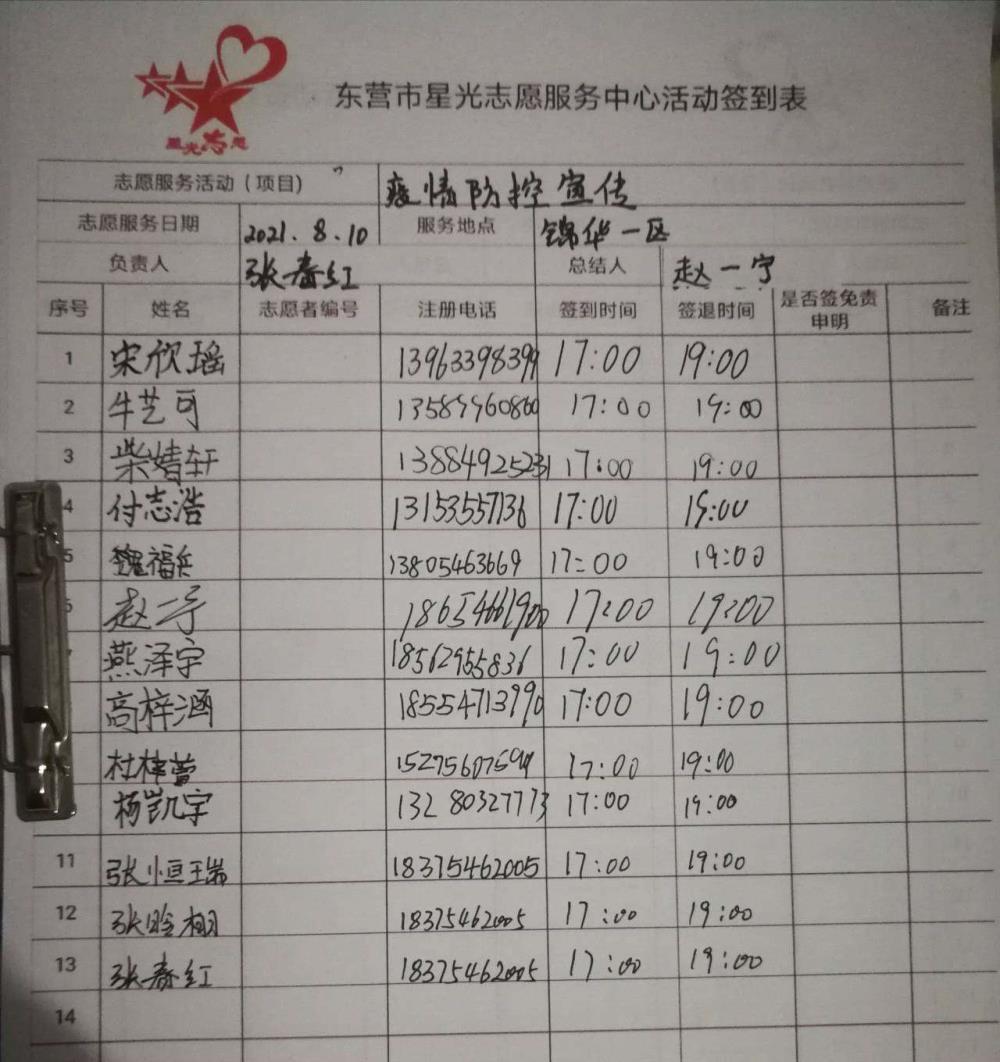 星光志愿
东营市星光志愿服务中心活动签到表
志愿服务活动(项目) 疫情防控宣传
志愿服务日期 2021.8.10 服务地点 锦华一区
负责人 张春红 总结人 赵一宁
序号 姓名 志愿者编号 注册电话 签到时间 签退时间 是否签免责申明 备注
1 宋欣瑶 13963398399 17:00 19:00
2 牛艺可 13589960860 17:00 19:00
3 柴婧轩 13884925231 17:00 19:00
4 付志浩 13153557136 17:00 19:00
5 魏福兵 13805463669 17:00 19:00
6 赵一宁 18654661900 17:00 19:00
7 燕泽宇 18562955836 17:00 19:00
高梓涵 18554713990 17:00 19:00
杜梓萱 15275607594 17:00 19:00
杨凯宇 13280327773 17:00 19:00
11 张恒瑞 18375462005 17:00 19:00
12 张晗栩 18375462005 17:00 19:00
13 张春红 18375462005 17:00 19:00
14